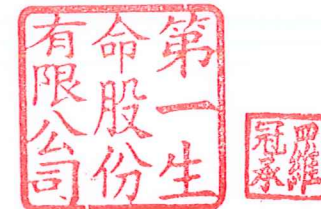 第一生
命股份
有限公司
羅維
冠承